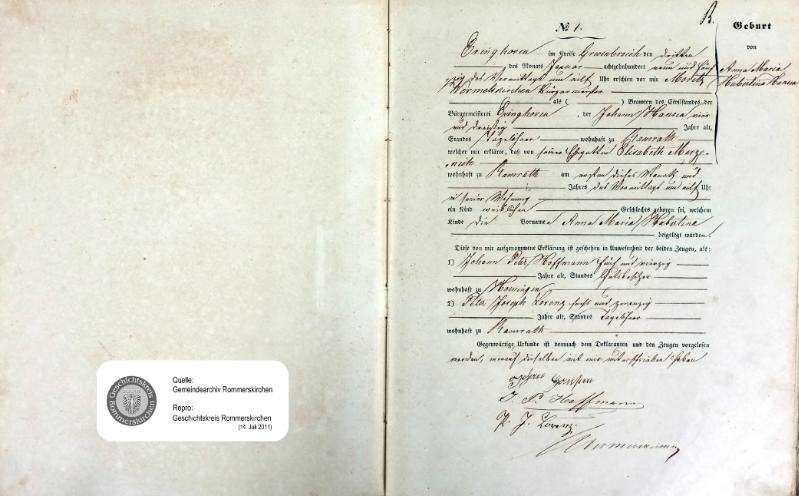 Quelle:
Gemeindearchiv Rommerskirchen
Repro:
Geschichtskreis Rommerskirchen
(14. Juli 2011)
Geschichtskreis
Rommerskirchen
B.
№ 1.
Geburt
von
Anna Maria
Hubertina Hansen
Evinghoven im Kreise Grevenbroich den dritten
des Monats Januar achtzehnhundert neun und fünf
zig des Vormittags um elf Uhr erschien vor mir Moritz
Wermelskirchen Bürgermeister
als ( ) Beamten des Civilstandes der
Bürgermeisterei Evinghoven, der Johann Hansen vier
und dreißig Jahre alt,
Standes Tagelöhner wohnhaft zu Ramrath
welcher mir erklärte, daß von seiner Ehegattin Elisabeth
wohnhaft zu Ramrath am ersten dieses Monats und
Jahres des Vormittags um elf Uhr
in seiner Wohnung
ein Kind weiblichen Geschlechts geboren sei, welchem
Kinde die Vornamen Anna Maria Hubertina
beigelegt wurden.
Diese von mir aufgenommene Erklärung ist geschehen in Anwesenheit der beiden Zeugen, als:
1) Johann Peter Hoffmann fünf und vierzig
Jahre alt, Standes Gutsbesitzer
wohnhaft zu Hoeningen
2) Peter Joseph Lorenz sechs und zwanzig
Jahre alt, Standes Tagelöhner
wohnhaft zu Ramrath
Gegenwärtige Urkunde ist demnach dem Deklaranten und den Zeugen vorgelesen
worden, worauf dieselben mit mir unterschrieben haben
J. P. Hoffmann
P. J. Lorenz